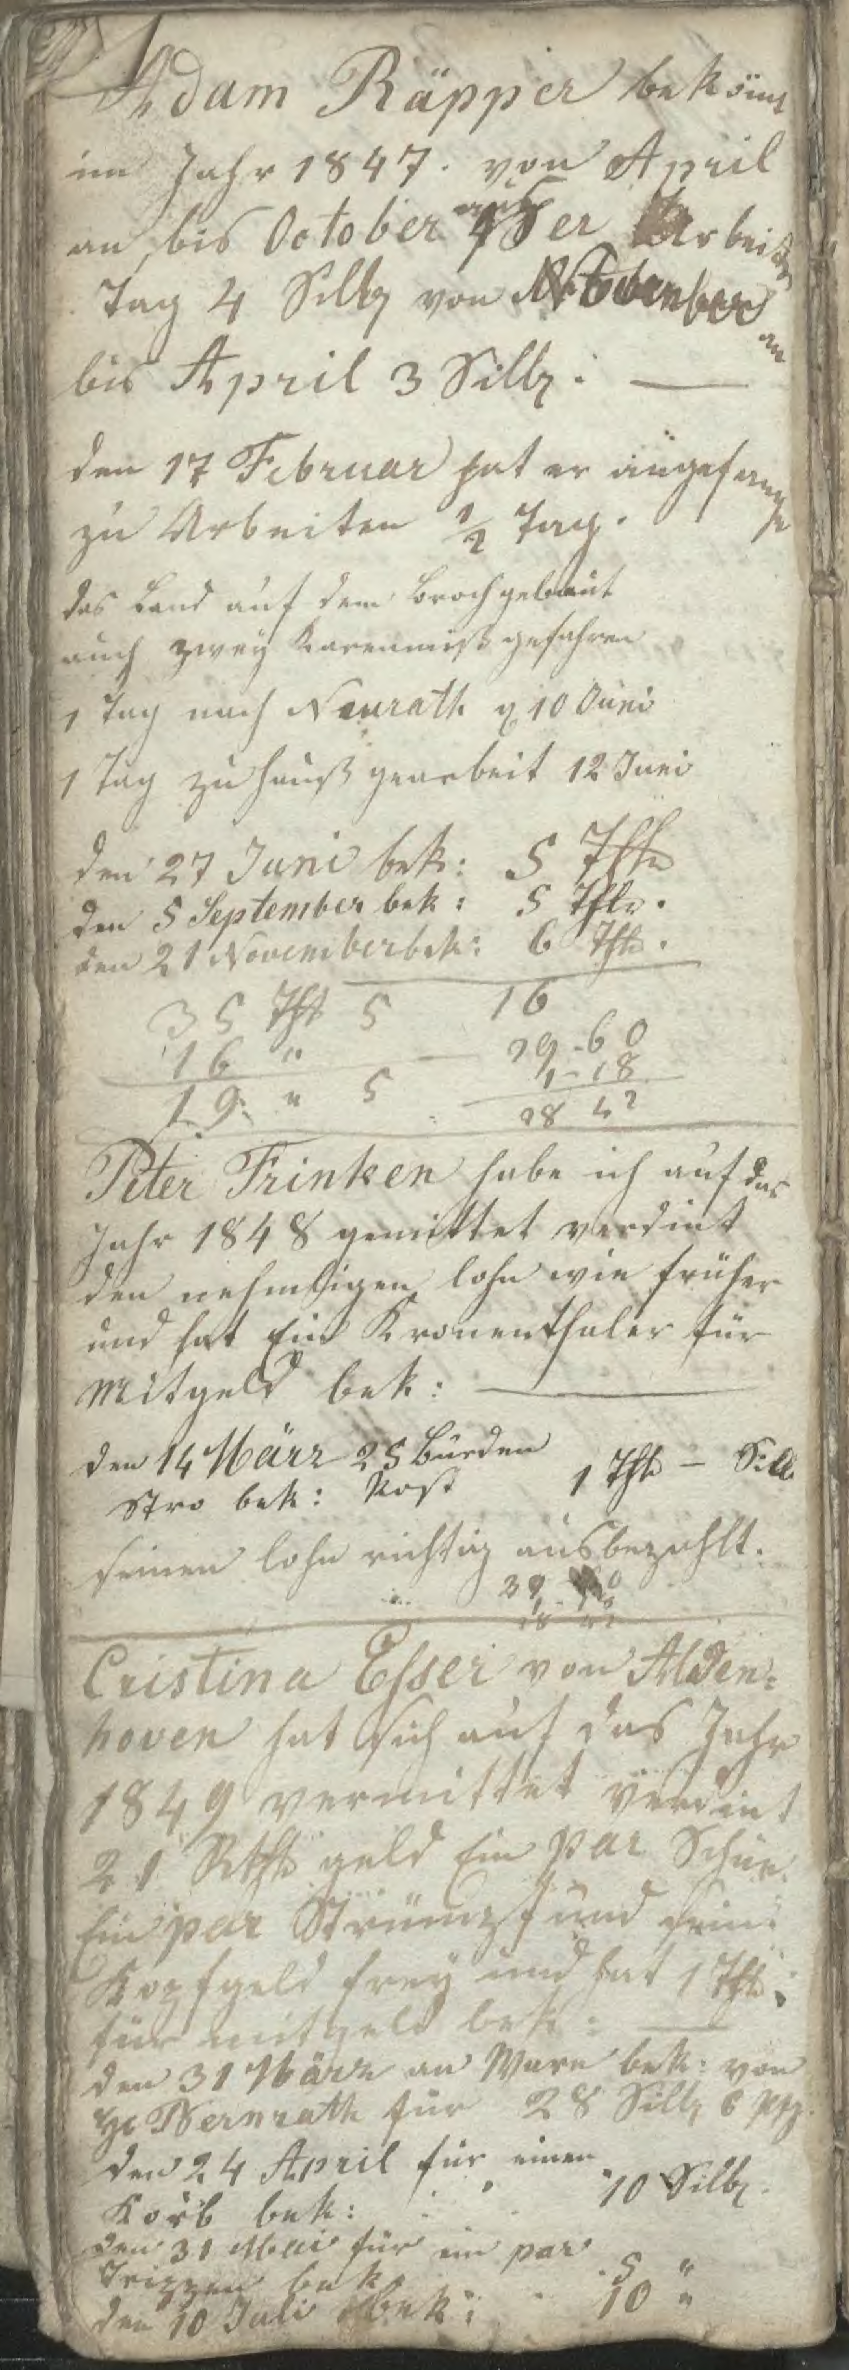 Adam Räpper bekömt
im Jahr 1847. von April
an bis October per Arbeits
Tag 4 Silbg von November an
bis April 3 Silbg: —
den 17 Februar hat er angefange
zu Arbeiten ½ Tag.
das Land auf dem broch gebaut
auch zwey Karenmist gefahren
1 Tag nach Neurath 10 Juni
1 Tag zu hauß gearbeit 12 Juni
den 27 Juni bek: 5 Thlr
den 5 September bek: 5 Thlr.
den 21 November bek: 6 Thlr.
35 Thlr 5 16
16 " 29-60
1-18
19 " 5 28 42
Peter Frinken habe ich auf das
Jahr 1848 gemittet verdint
den nehmligen lohn wie früher
und hat Ein Kronenthaler für
Mitgeld bek: —
den 14 März 25 Bürden
Stro bek: Kost 1 Thlr - Silb
seinen lohn richtig ausbezahlt.
Cristina Esser von Alden=
hoven hat sich auf das Jahr
1849 vermittet verdint
21 Rthlr geld Ein par Schue
Ein par Strümpf und frein
Kopfgeld frey und hat 1 Thlr
für mitgeld bek: —
den 31 März an Ware bek: von
Bernrath für 28 Silbg 6 Pfg.
den 24 April für einen
Korb bek: 10 Silbg.
den 31 Mai für ein par
Trippen bek 5 "
den 10 Juli bek: 10 "